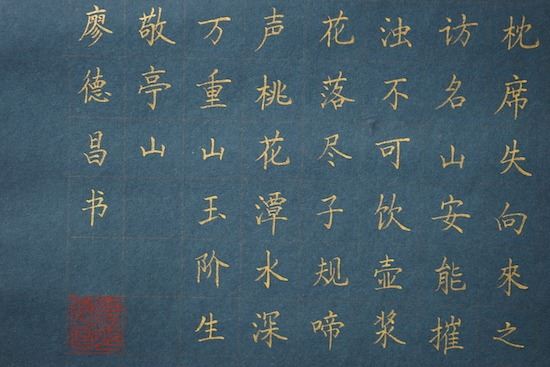 枕席失向來之
访名山安能摧
浊不可饮壶浆
花落尽子规啼
声桃花潭水深
万重山玉阶生
敬亭山
廖德昌书